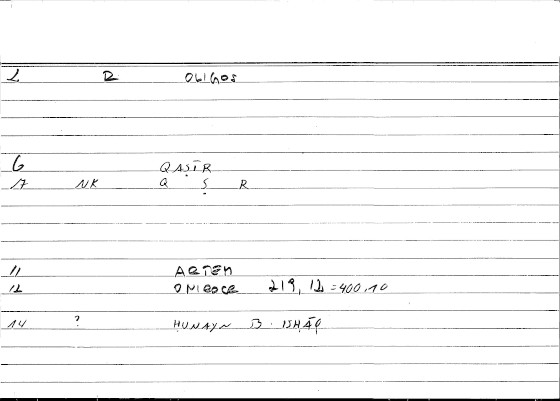 1 D OLIGOS
6 QAṢĪR
7 NK Q Ṣ R
11 ARTEM
12 ONIROCR 219, 12 = 400,10
14 ? ḤUNAYN B. ISḤĀQ